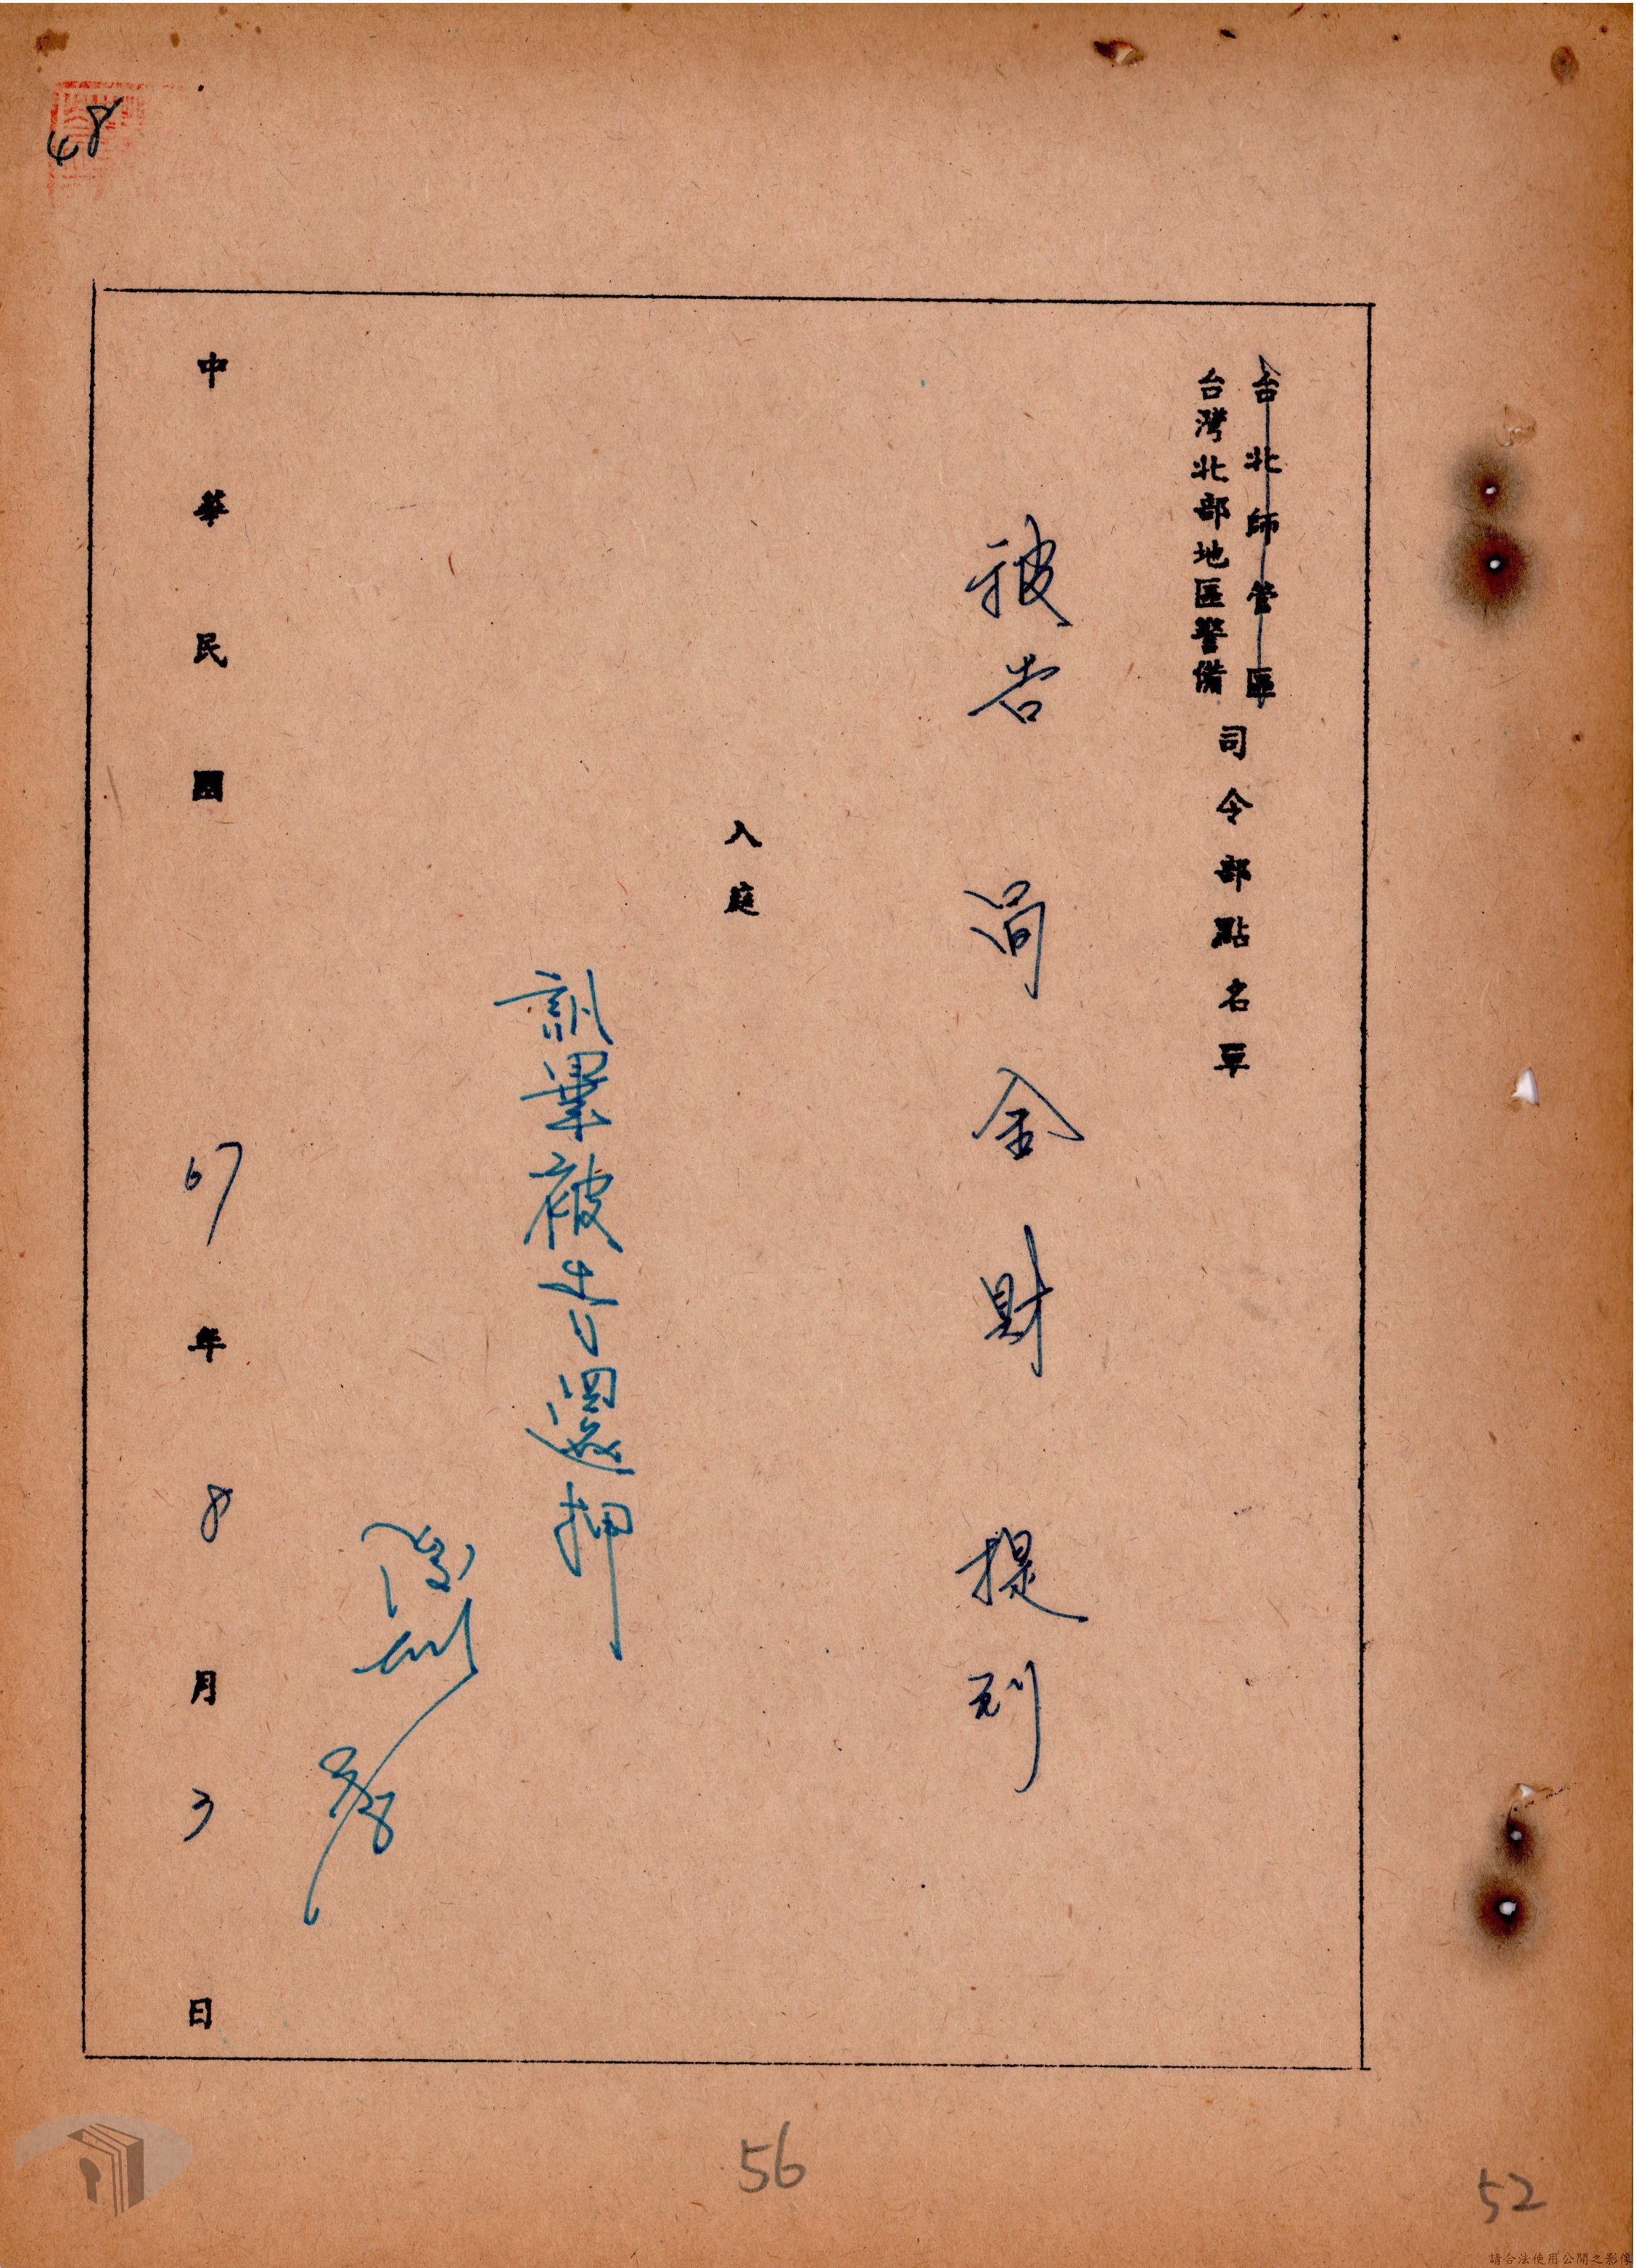 台北師管區
台灣北部地區警備
司令部點名單
被告 尚金財 提到
入庭
訊畢被告還押
8/3
中華民國 67 年 8 月 3 日
48
56
52
請合法使用公開之影像